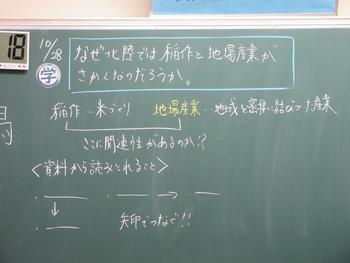 18
10/28
学 なぜ北陸では稲作と地場産業が
さかんなのだろうか。
稲作…米づくり 地場産業…地域と密接に結びついた産業
ここに関連性があるのか!?
<資料から読みとれること>
矢印でつなぐ!!